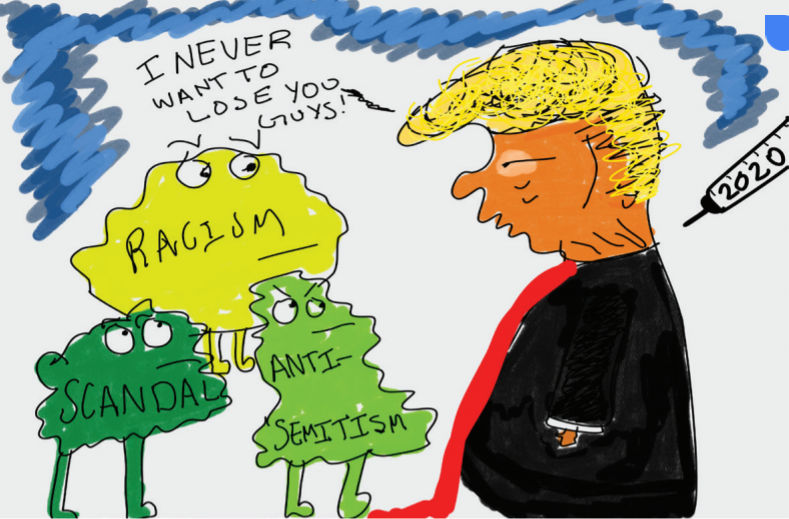 I NEVER
WANT TO
LOSE YOU
GUYS!
2020
RACISM
SCANDAL
ANTI-
SEMITISM